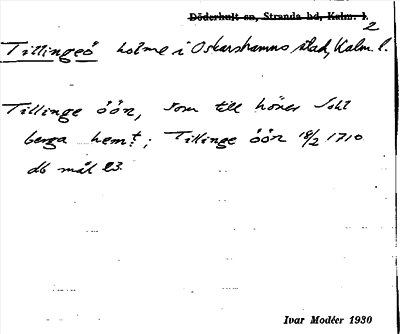 Döderhult sn, Stranda hd, Kalm. l.
2
Tillingeö holme i Oskarshamns stad, Kalm. l.
Tillinge öön, som till hörer
berga hem; Tillinge öön 18/2 1710
db mål 23.
Ivar Modéer 1930